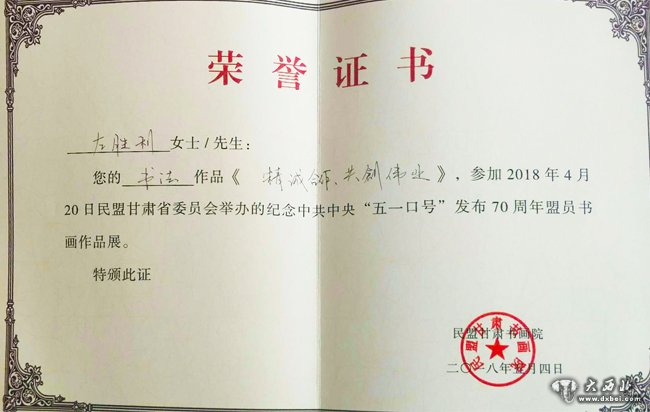 荣誉证书
左胜利 女士/先生：
您的 书法 作品《 精诚合作、共创伟业 》，参加 2018 年 4 月
20 日民盟甘肃省委员会举办的纪念中共中央“五一口号”发布 70 周年盟员书
画作品展。
特颁此证
民盟甘肃书画院
民盟甘肃书画院
二〇一八年五月四日
大西北网
www.dxbei.com